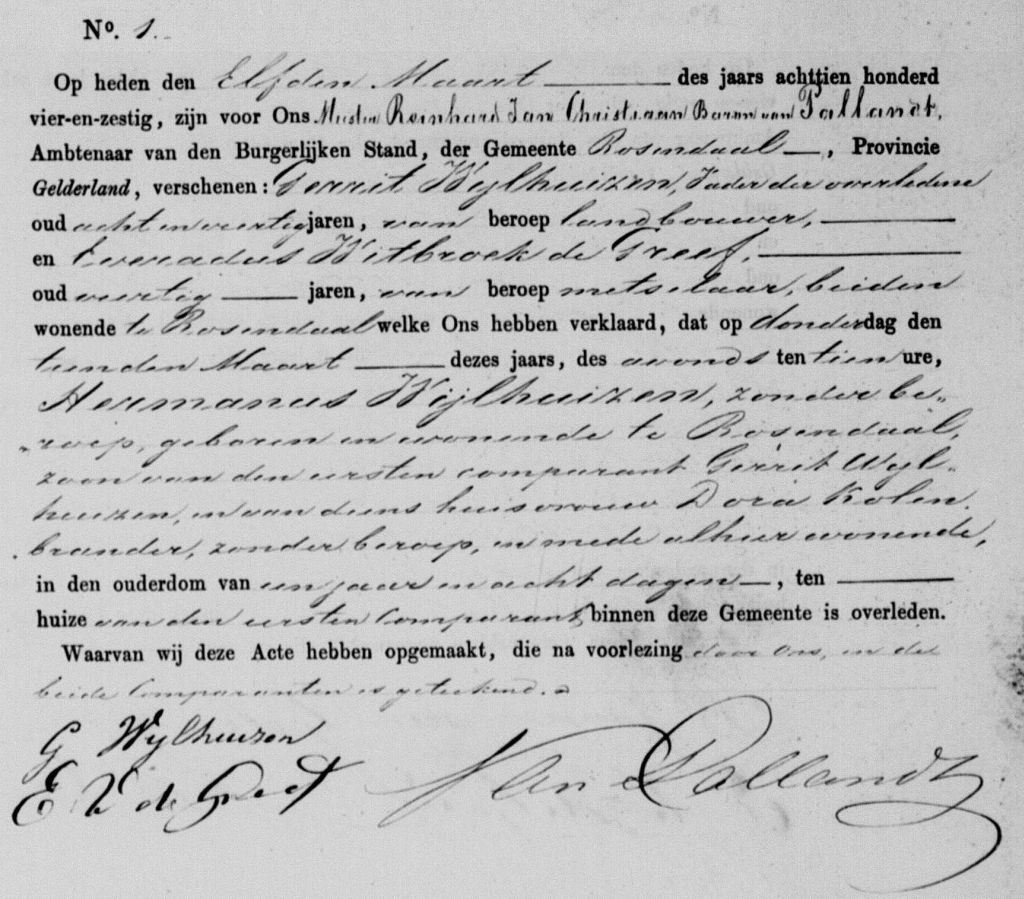 No. 1.
Op heden den Elfden Maart des jaars achttien honderd
vier-en-zestig, zijn voor Ons Meester Reinhard Jan Christiaan Baron van Pallandt,
Ambtenaar van den Burgerlijken Stand, der Gemeente Rosendaal, Provincie
Gelderland, verschenen: Gerrit Wijlhuizen, Vader der overledene
oud acht en veertig jaren, van beroep landbouwer,
en Everadus Witbroek de Greef,
oud veertig jaren, van beroep metselaar, beiden
wonende te Rosendaal welke Ons hebben verklaard, dat op donderdag den
tienden Maart dezes jaars, des avonds ten tien ure,
Hermanus Wijlhuizen, zonder be-
roep, geboren en wonende te Rosendaal,
zoon van den eersten comparant Gerrit Wijl-
huizen, en van diens huisvrouw Dora Kolen
brander, zonder beroep, en mede alhier wonende,
in den ouderdom van een jaar en acht dagen, ten
huize van den eersten Comparant, binnen deze Gemeente is overleden.
Waarvan wij deze Acte hebben opgemaakt, die na voorlezing door Ons, en de
beide Comparanten is geteekend.
G Wijlhuizen
E W de Greef Van Pallandt